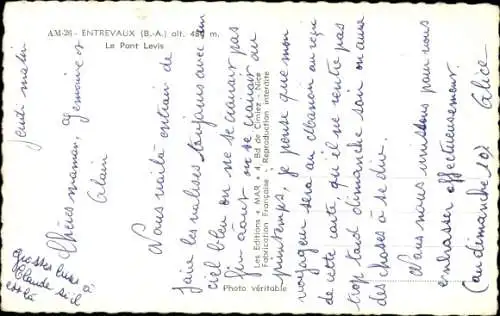 AM-26 - ENTREVAUX (B.-A.) alt. 48 m.
Le Pont Levis
Jeudi matin
Chères maman, gémoires et
Alain
Nous voilà en train de
faire les valises toujours avec un
ciel bleu on ne se croirait pas
fin août on se croirait au
printemps, je pense que mon
voyageur sera au au reçu
de cette carte qu'il ne rentre pas
trop tard dimanche soir on aura
des choses à se dire.
Nous nous unissons pour vous
embrasser affectueusement.
(au dimanche 10) Alice
grosses bises à
Claude s'il
est là
Les Editions "MAR" 4, Bd de Cimiez - Nice
Fabrication Française - Reproduction interdite
Photo véritable